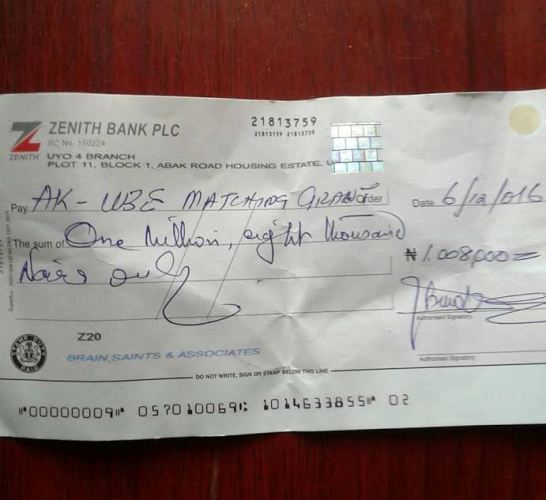 ZENITH BANK PLC
RC No. 150224
ZENITH
UYO 4 BRANCH
PLOT 11, BLOCK 1, ABAK ROAD HOUSING ESTATE,
21813759
21813759 21813759
Pay AK-UBE MATCHING GRANT Order
Date 6/12/016
The sum of One Million, eight thousand
Naira only
₦ 1.008,000=
Authorised Signatory
Z20
BRAIN,SAINTS & ASSOCIATES
Authorised Signatory
DO NOT WRITE, SIGN OR STAMP BELOW THIS LINE
⑈00000009⑈ 057010069⑆ 1014633855⑈ 02